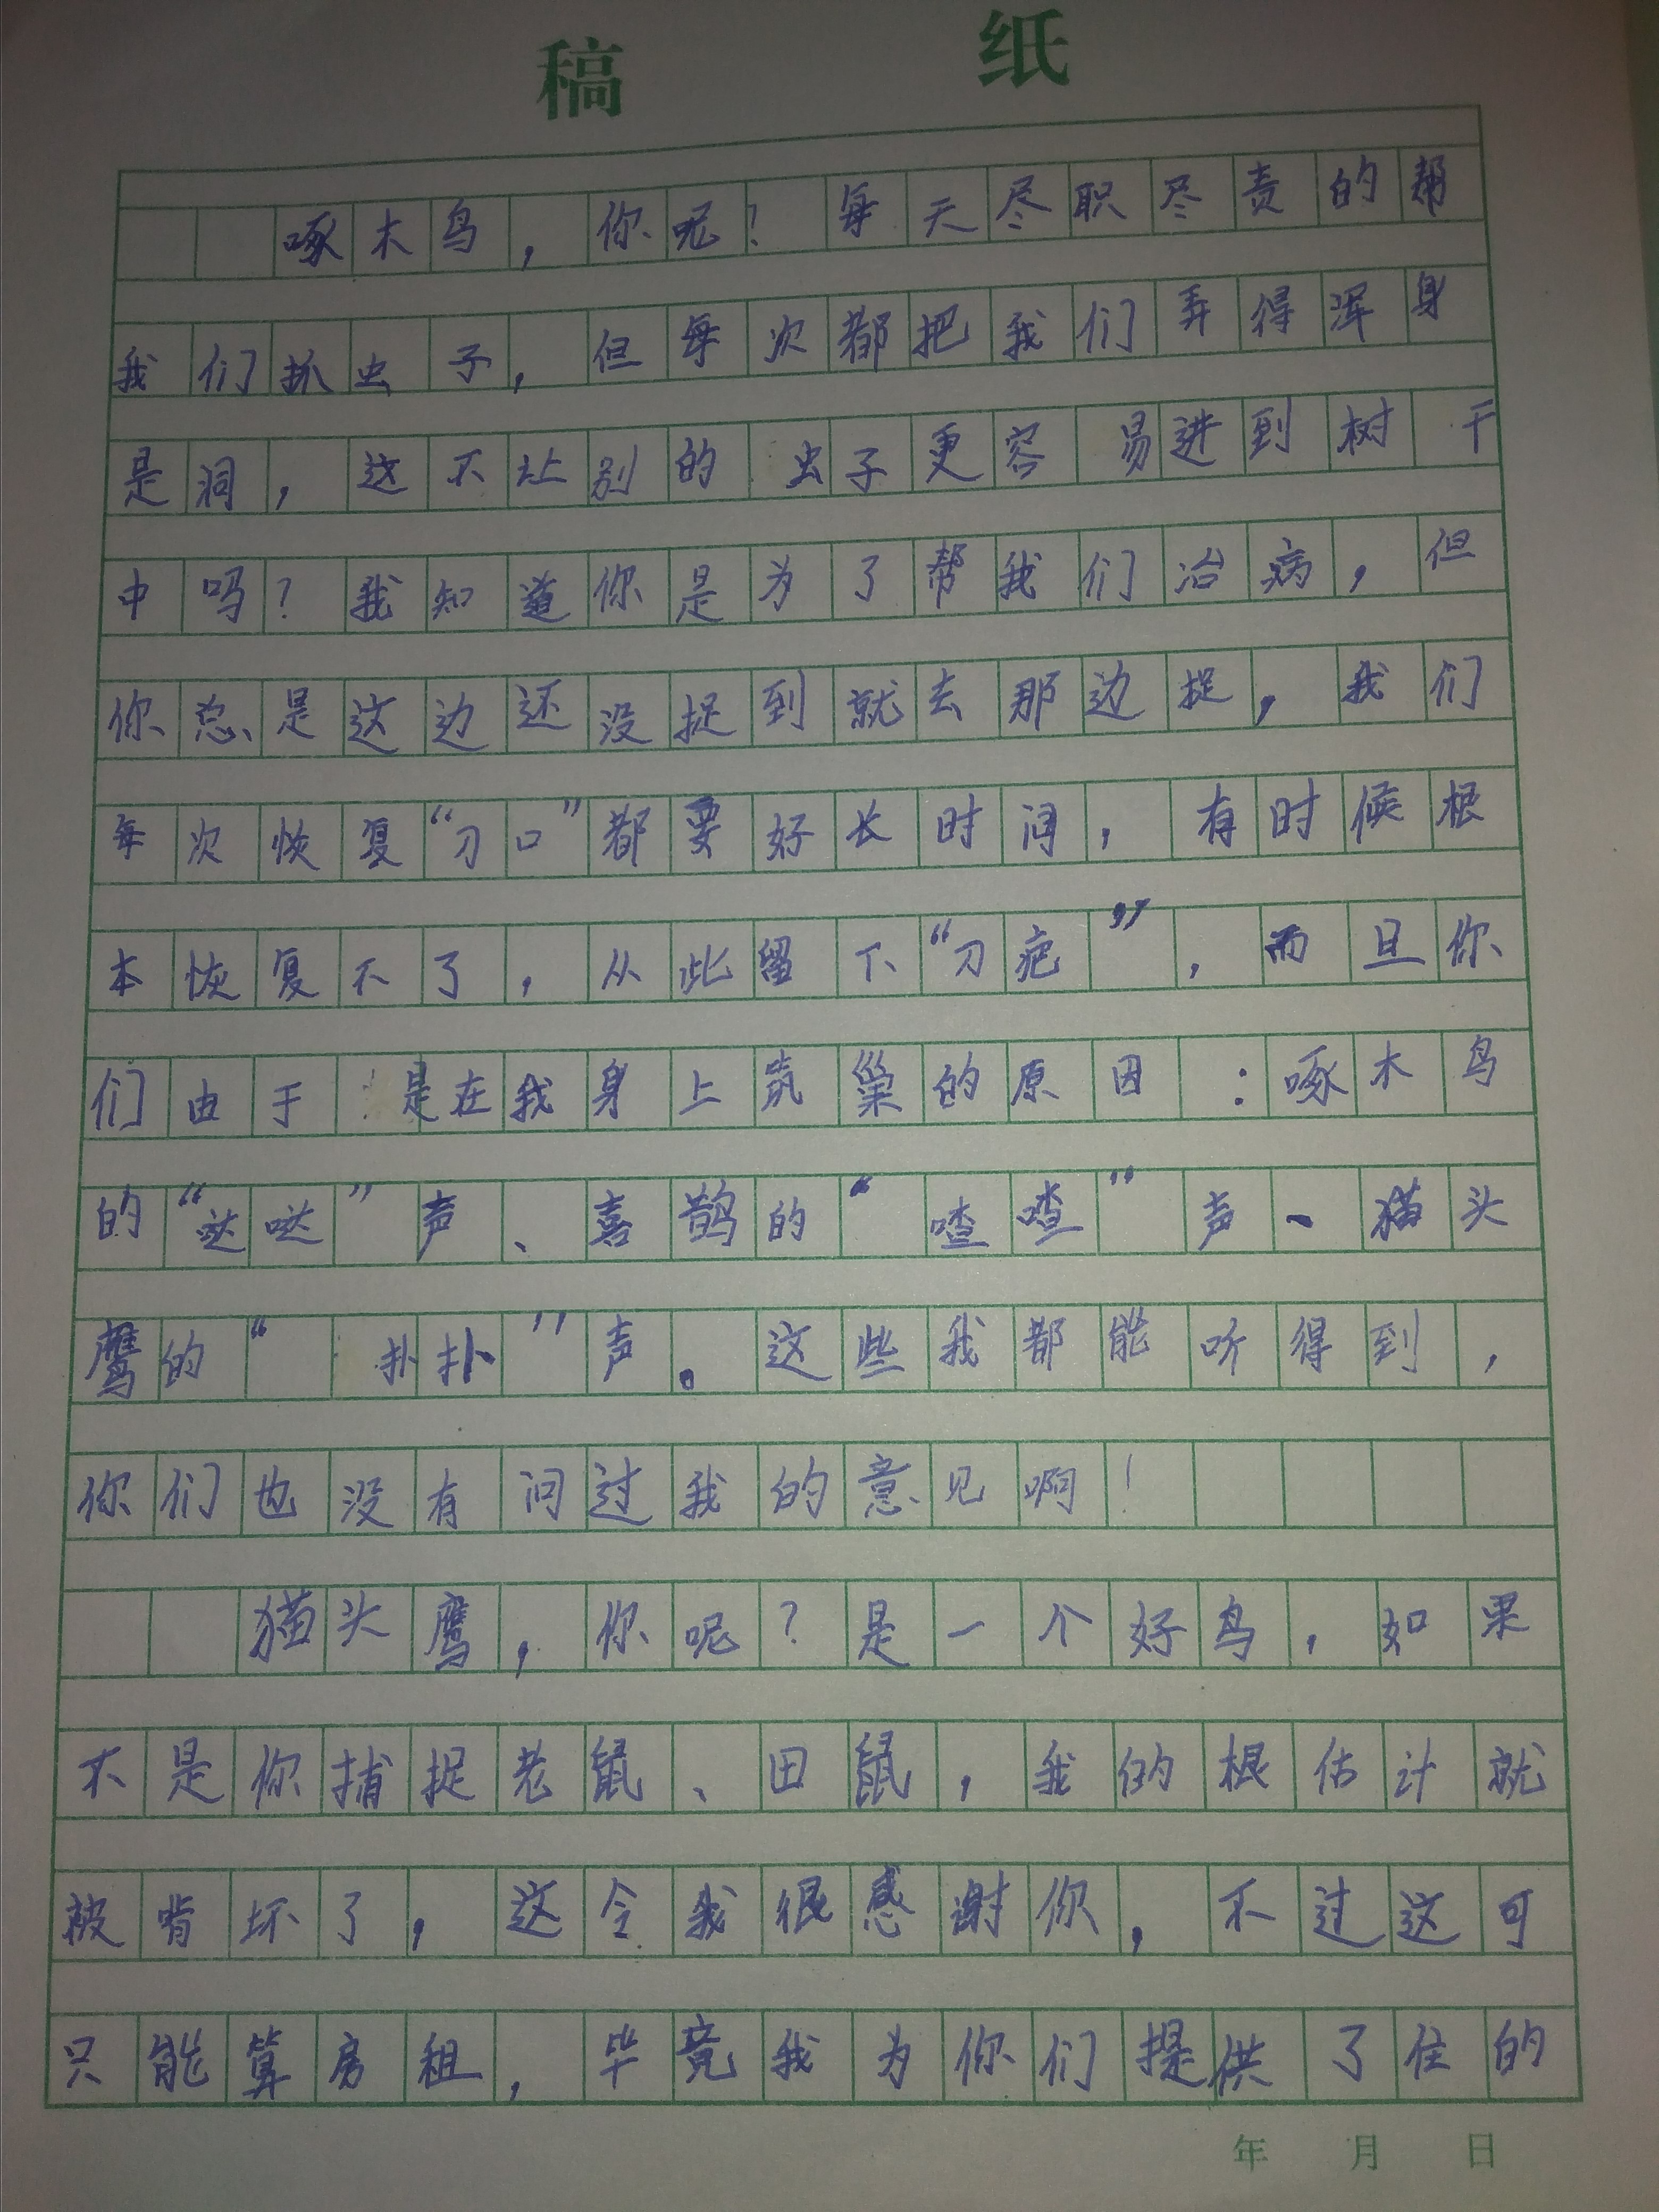 稿 纸
啄木鸟，你呢？每天尽职尽责的帮
我们抓虫子，但每次都把我们弄得浑身
是洞，这不让别的虫子更容易进到树干
中吗？我知道你是为了帮我们治病，但
你总是这边还没捉到就去那边捉，我们
每次恢复“刀口”都要好长时间，有时候根
本恢复不了，从此留下“刀疤”，而且你
们由于是在我身上筑巢的原因：啄木鸟
的“哒哒”声、喜鹊的“喳喳”声、猫头
鹰的“扑扑”声。这些我都能听得到，
你们也没有问过我的意见啊！
猫头鹰，你呢？是一个好鸟，如果
不是你捕捉老鼠、田鼠，我的根估计就
被啃坏了，这令我很感谢你，不过这可
只能算房租，毕竟我为你们提供了住的
年 月 日